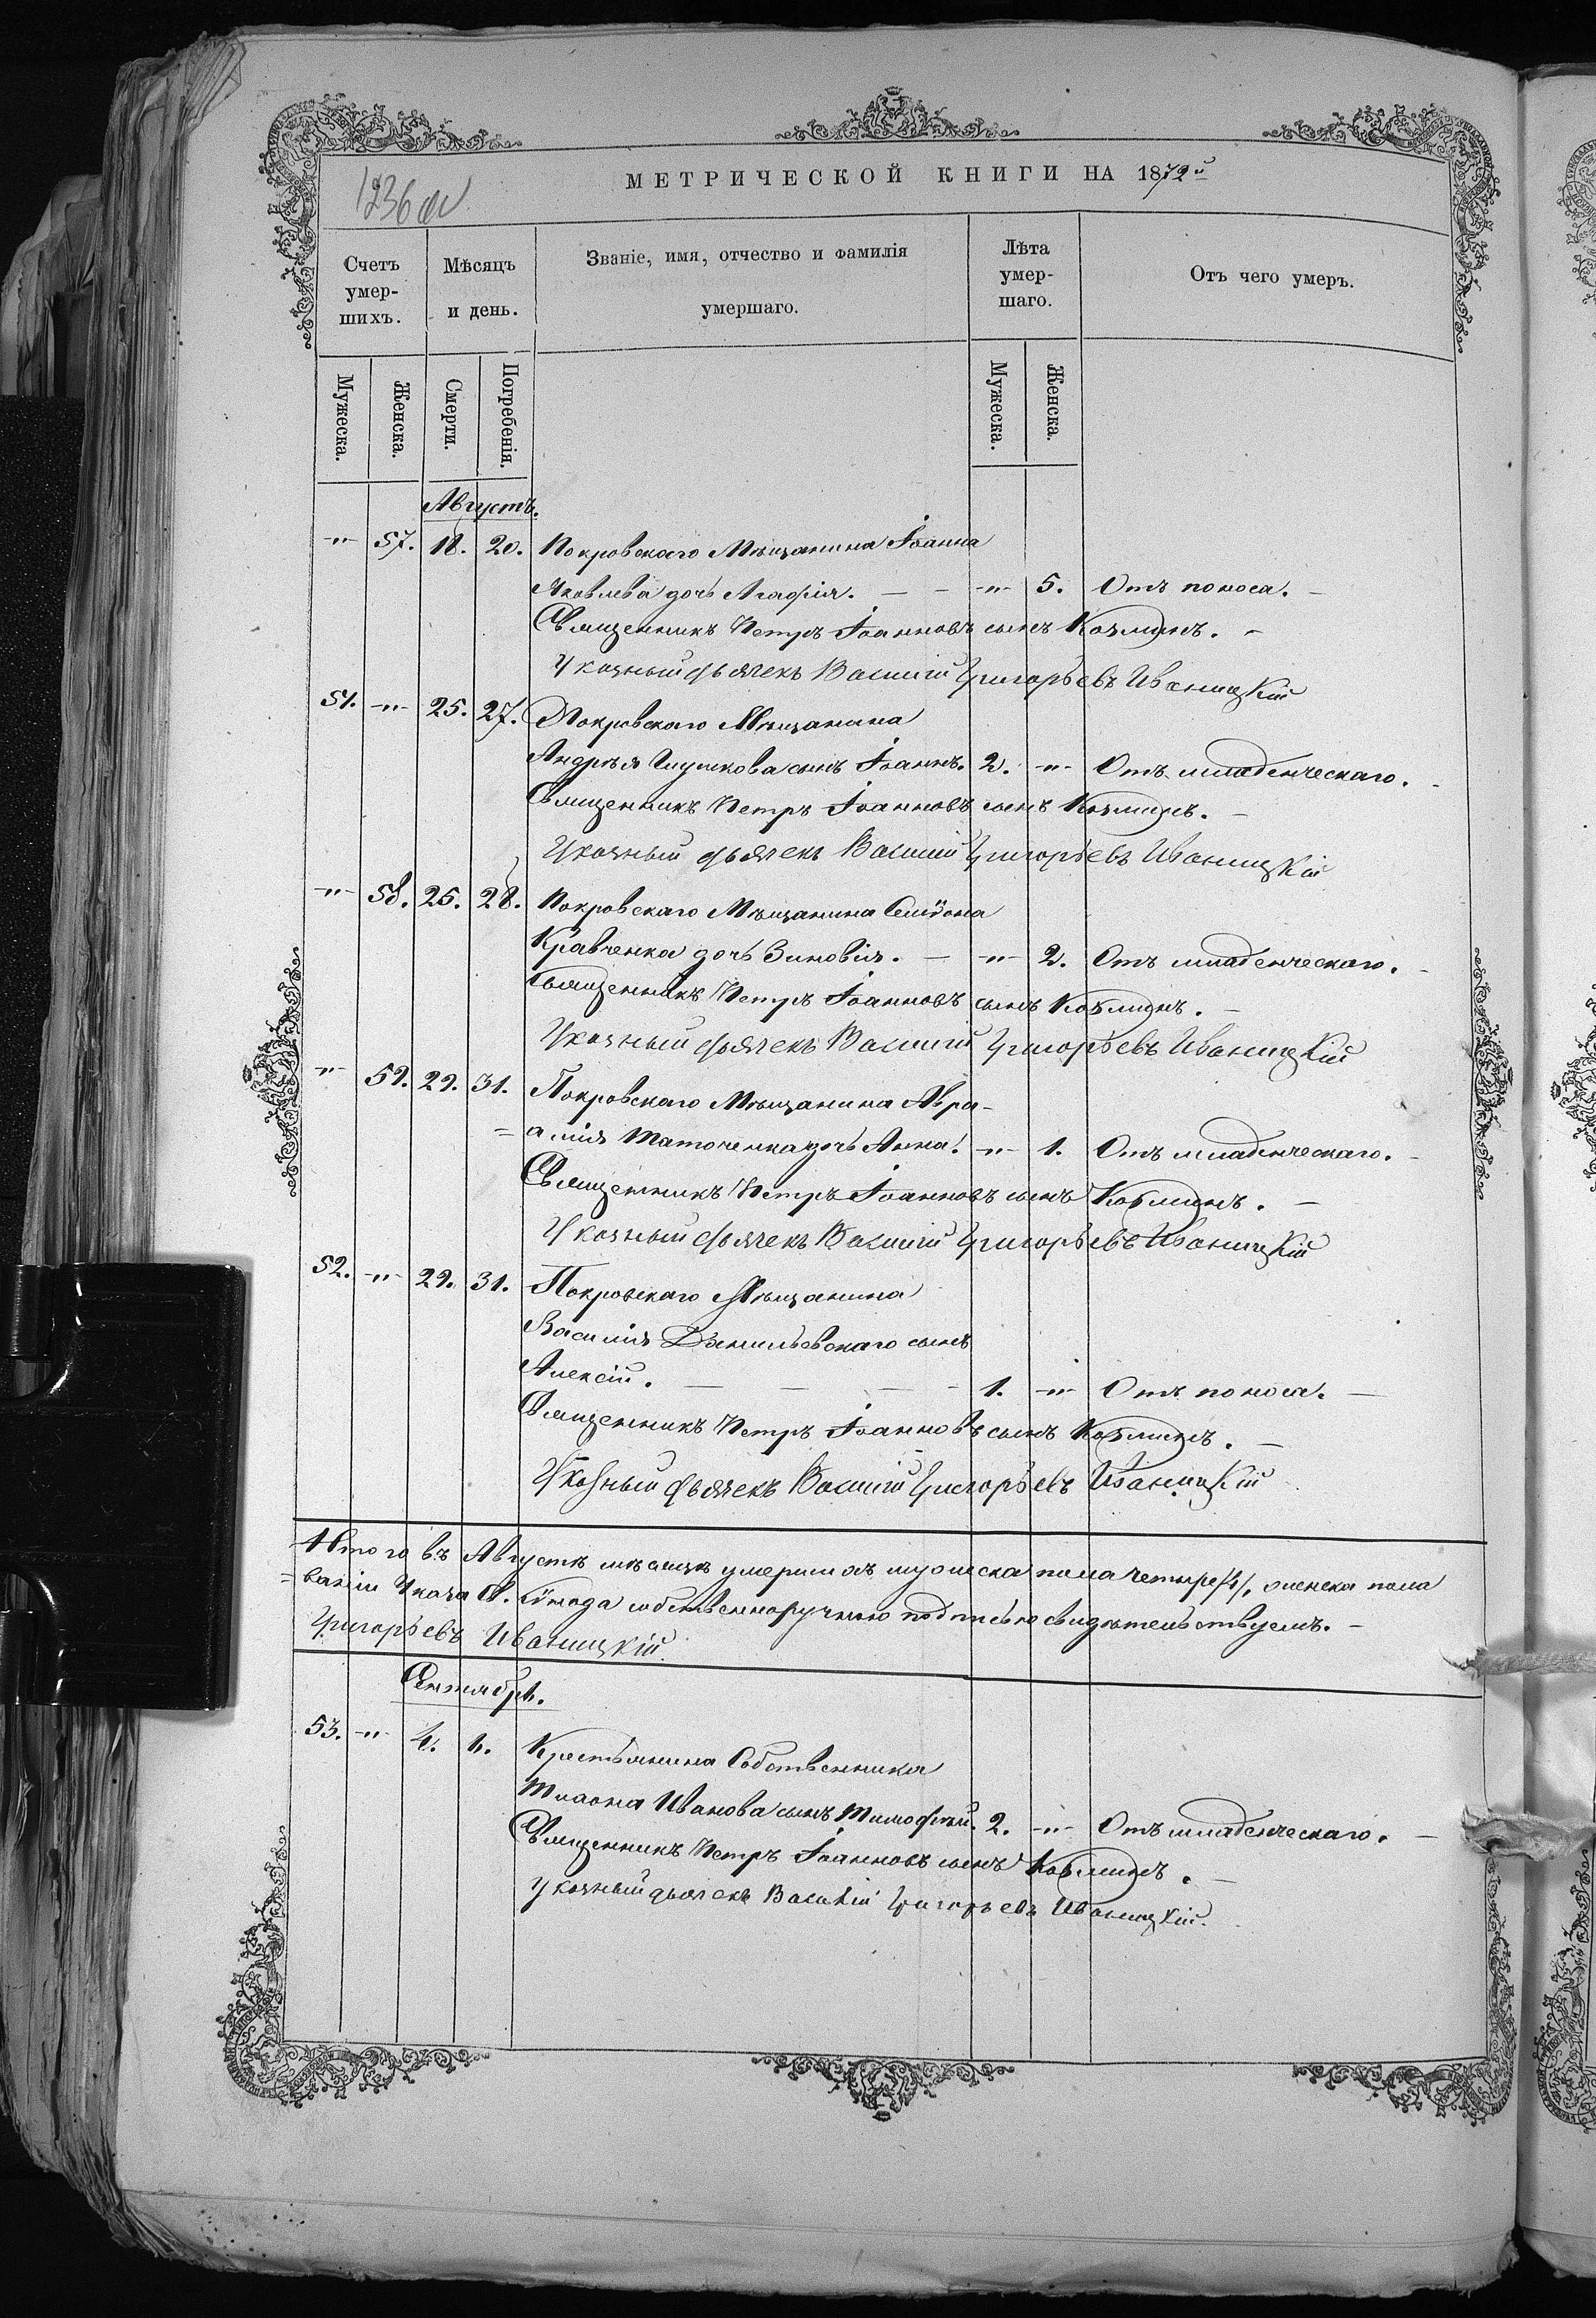 МЕТРИЧЕСКОЙ КНИГИ НА 1872й
1236 об
Счетъ умер-шихъ.
Мѣсяцъ и день.
Званіе, имя, отчество и фамилія умершаго.
Лѣта умер-шаго.
Отъ чего умеръ.
Мужеска. Женска. Смерти. Погребенія. Мужеска. Женска.
Августъ.
-"- 57. 18. 20. Покровскаго Мѣщанина Іоанна
Яковлева дочь Агафія. — - -"- 5. Отъ поноса. -
Священникъ Петръ Іоанновъ сынъ Козминъ. -
Указный дьячекъ Василій Григорьевъ Иваницкій
51. -"- 25. 27. Покровскаго Мѣщанина
Андрея сынъ Іоаннъ. 2. -"- Отъ младенческаго. -
Священникъ Петръ Іоанновъ сынъ Козминъ. -
Указный дьячекъ Василій Григорьевъ Иваницкій
-"- 58. 25. 28. Покровскаго Мѣщанина Симіона
Кравченка дочь Зиновія. — -"- 2. Отъ младенческаго. -
Священникъ Петръ Іоанновъ сынъ Козминъ. -
Указный дьячекъ Василій Григорьевъ Иваницкій
-"- 59. 29. 31. Покровскаго Мѣщанина Авра-
=амія дочь Анна. -"- 1. Отъ младенческаго. -
Священникъ Петръ Іоанновъ сынъ Козминъ. -
Указный дьячекъ Василій Григорьевъ Иваницкій
52. -"- 29. 31. Покровскаго Мѣщанина
Василія Данильевскаго сынъ
Алексій. — — — - 1. -"- Отъ поноса. —
Священникъ Петръ Іоанновъ сынъ Козминъ. -
Указный дьячекъ Василій Григорьевъ Иваницкій
Итого въ Августѣ мѣсяцѣ умершихъ мужеска пола четыре /4/, женска пола
=ваніи Указа Св. Сѵнода собственноручною подписью свидѣтельствуемъ. -
Григорьевъ Иваницкій.
Сентябрь.
53. -"- 4. Крестьянина Собственника
Иванова сынъ Тимофѣй. 2. -"- Отъ младенческаго. —
Священникъ Петръ Іоанновъ сынъ Козминъ. -
Указный дьячекъ Василій Григорьевъ Иваницкій.